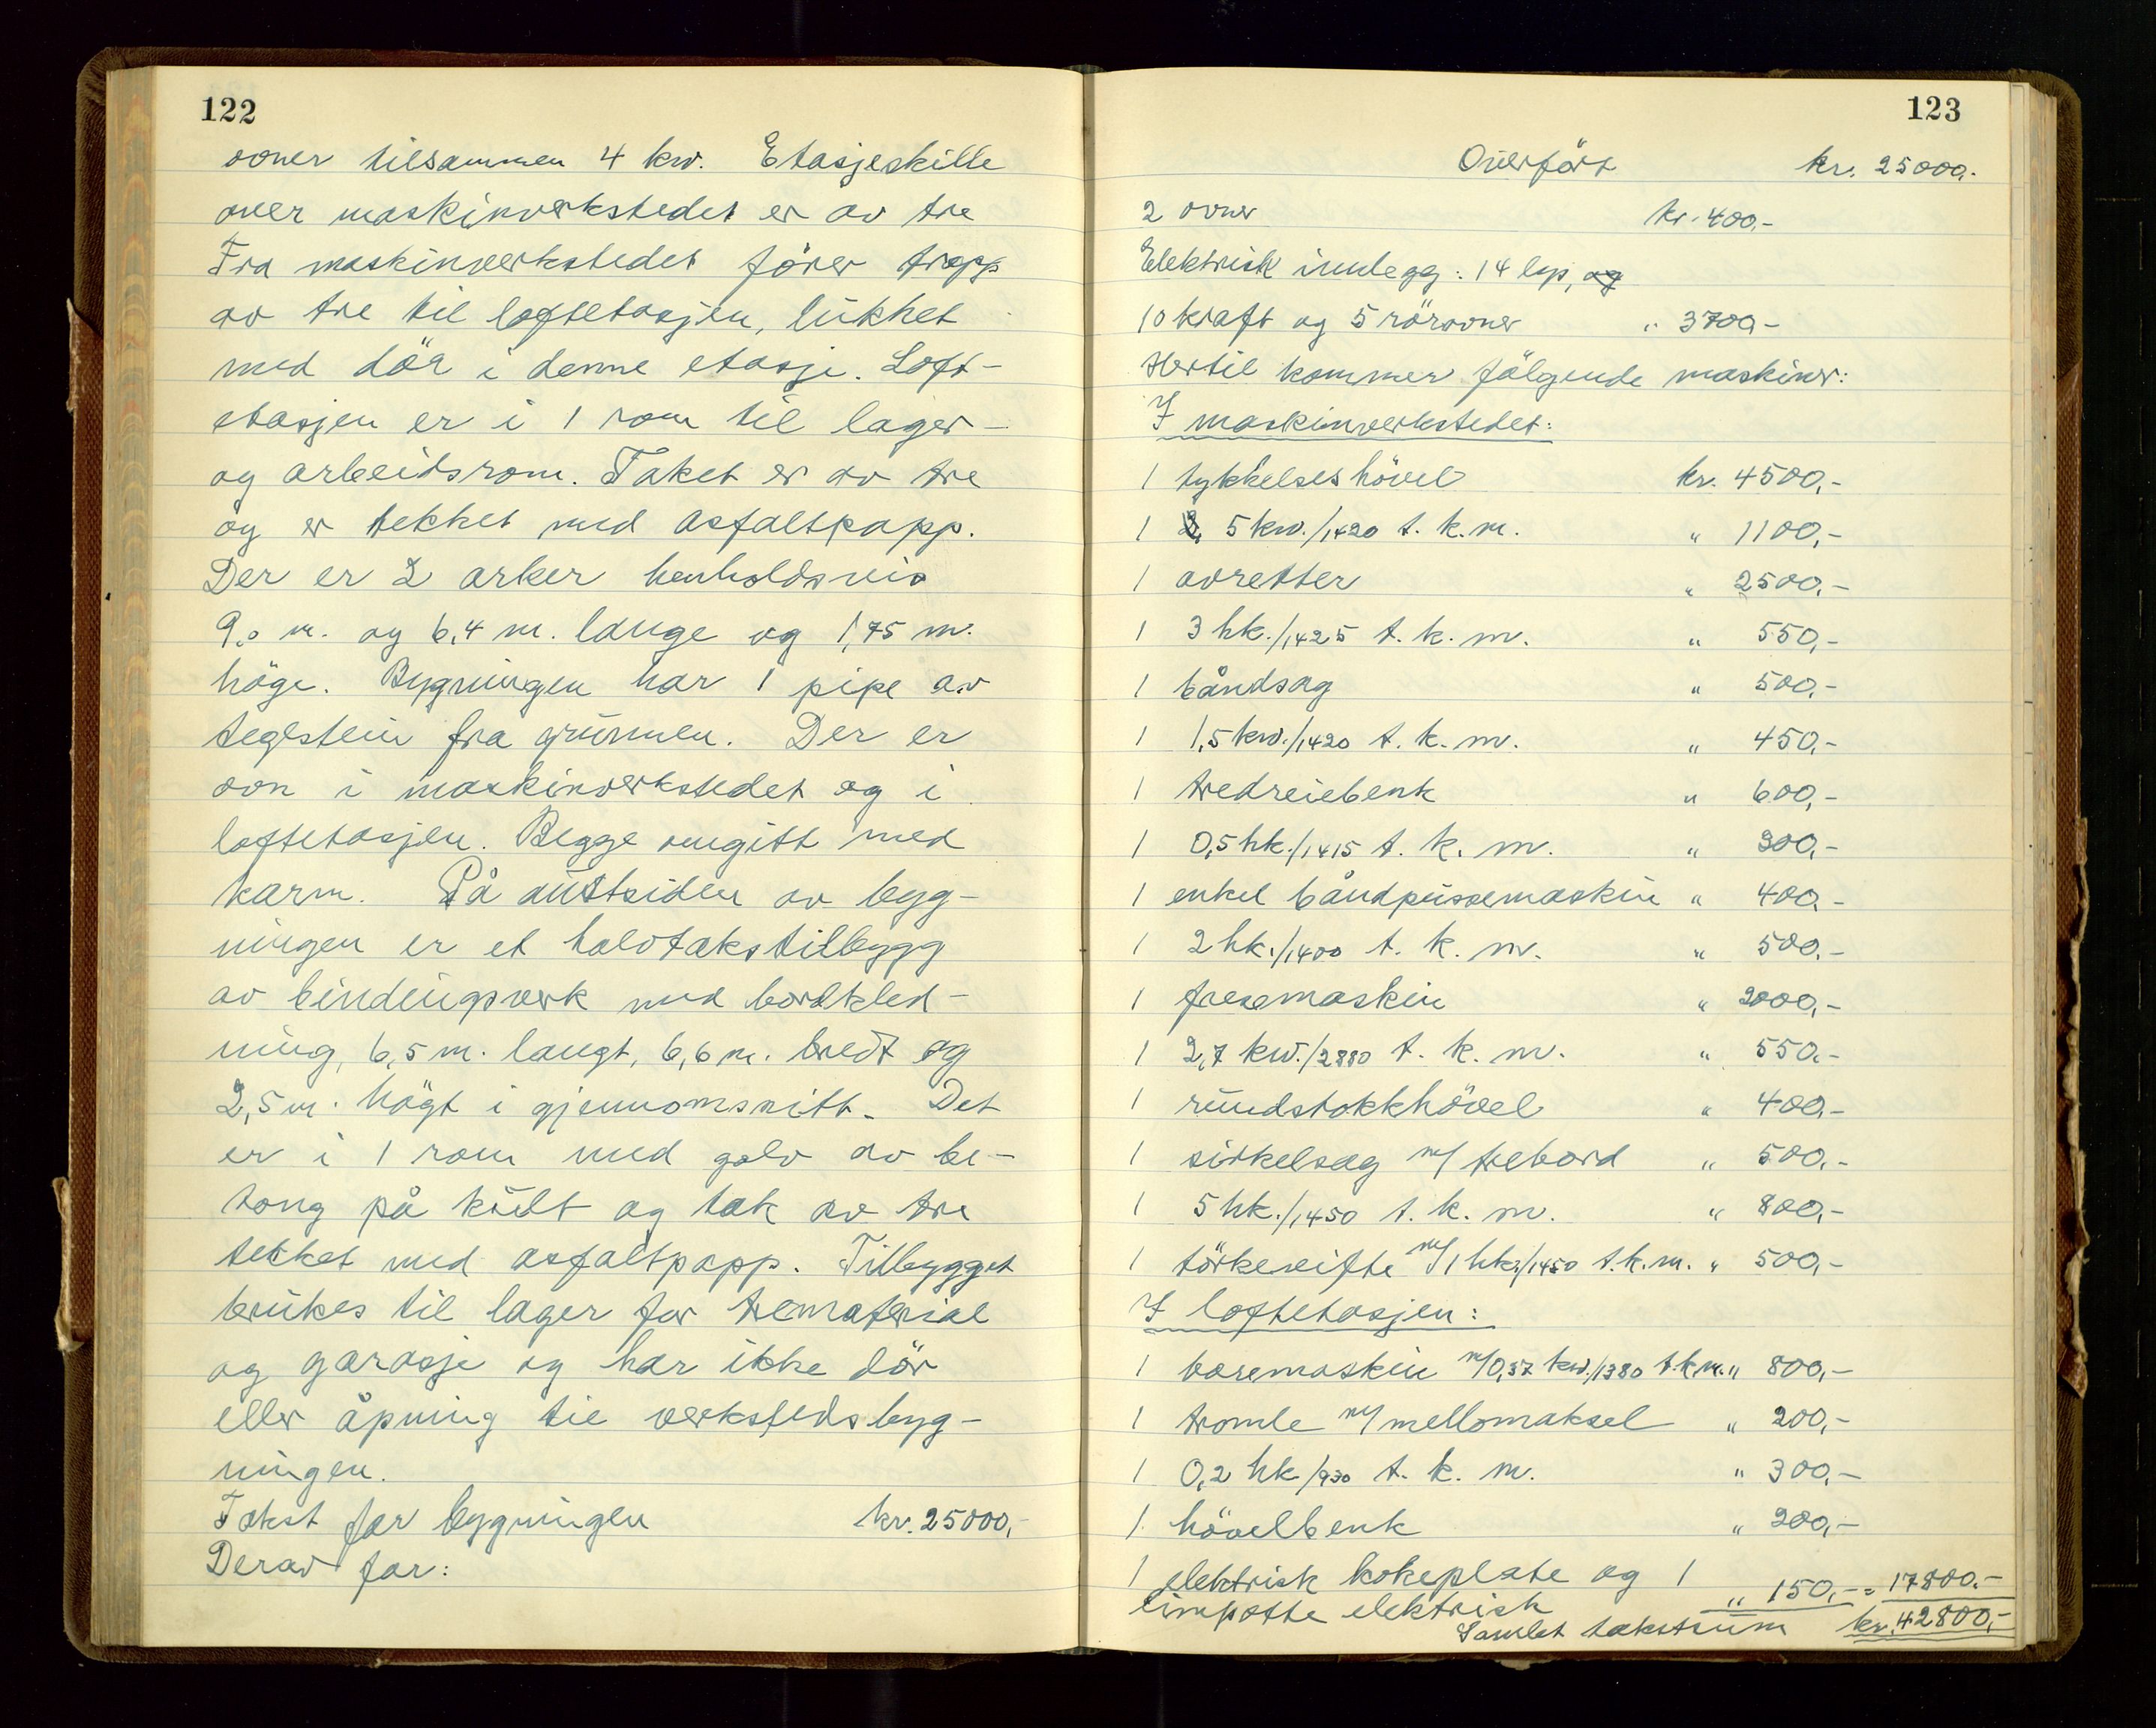 122
ovner tilsammen 4 kw. Etasjeskille
over maskinverkstedet er av tre
Fra maskinverkstedet förer trapp
av tre til loftetasjen, lukket
med dör i denne etasje. Loft-
etasjen er i 1 rom til lager-
og arbeidsrom. Taket er av tre
og er tekket med asfaltpapp.
Der er 2 arker henholdsvis
9,0 m. og 6,4 m. lange og 1,75 m.
höge. Bygningen har 1 pipe av
teglstein fra grunnen. Der er
ovn i maskinverkstedet og i
loftetasjen. Begge omgitt med
karm. På austsiden av byg-
ningen er et halvtakstilbygg
av bindingsverk med bordkled-
ning, 6,5 m. langt, 6,6 m. bredt og
2,5 m. högt i gjennomsnitt. Det
er i 1 rom med golv av be-
tong på kult og tak av tre
tekket med asfaltpapp. Tilbygget
brukes til lager for tremateriale
og garasje og har ikke dör
eller åpning til verkstedsbyg-
ningen.
Takst for bygningen kr. 25000,-
Derav for:
123
Overfört kr. 25000.-
2 ovner kr. 400,-
Elektrisk innlegg: 14 lys, og
10 kraft og 5 rörovner " 3700,-
Hertil kommer fölgende maskiner:
I maskinverkstedet:
1 tykkelseshövel kr. 4500,-
1 5 kw./1420 t. k. m. " 1100,-
1 avretter " 2500,-
1 3 hk./1425 t. k. m. " 550,-
1 båndsag " 500,-
1 1,5 kw./1420 t. k. m. " 450,-
1 tredreiebenk " 600,-
1 0,5 hk./1415 t. k. m. " 300,-
1 enkel båndpussemaskin " 400.-
1 2 hk./1400 t. k. m. " 500.-
1 fresemaskin " 2000,-
1 2,7 kw./2880 t. k. m. " 550.-
1 rundstokkhövel " 400,-
1 sirkelsag m/ trebord " 500,-
1 5 hk./1450 t. k. m. " 800,-
1 törkevifte m/1 hk./1450 t. k. m. " 500,-
I loftetasjen:
1 boremaskin m/0,37 kw./1380 t.k.m. " 800,-
1 tromle m/ mellomaksel " 200,-
1 0,2 hk/930 t. k. m. " 300,-
1 hövelbenk " 200,-
1 elektrisk kokeplate og 1
limpotte elektrisk " 150,- = 17800.-
Samlet takstsum kr. 42800,-